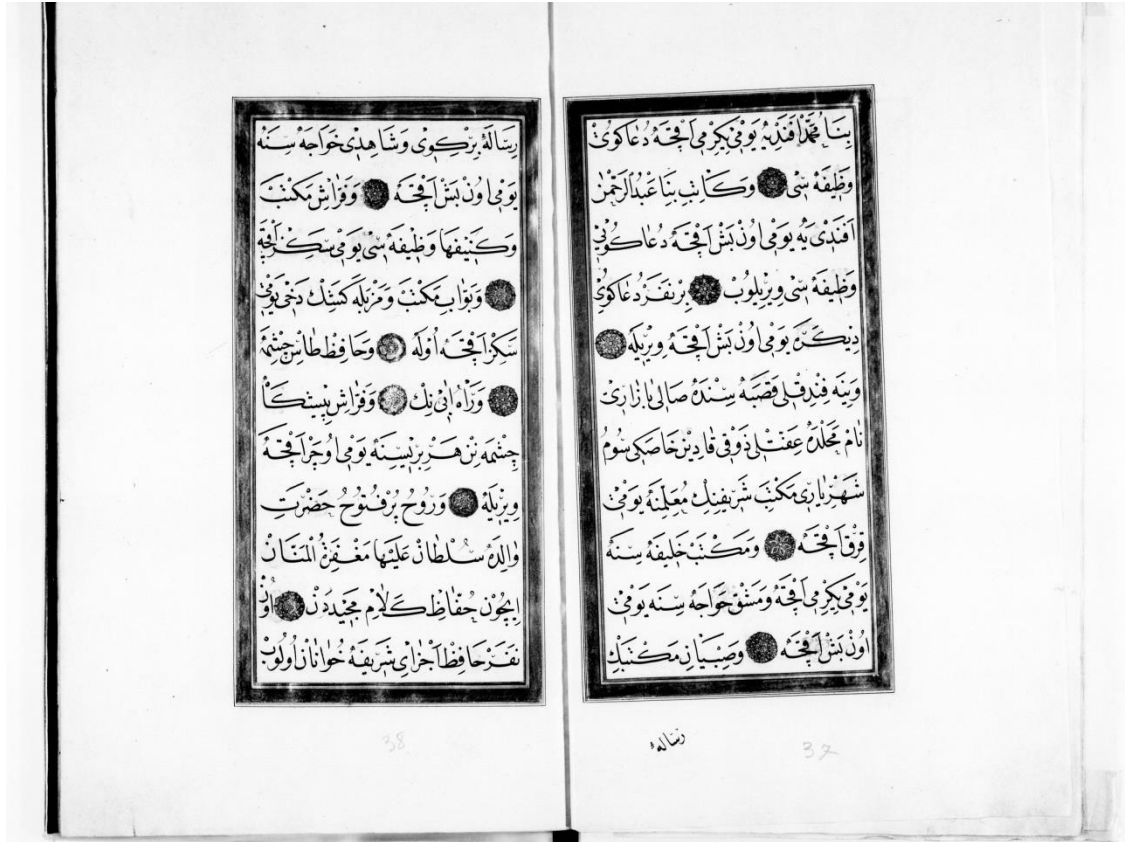 بنا محمد افندیه یومی یکرمی اقچه دعاکوی
وظیفه سی وکاتب بنا عبدالرحمن
افندی یه یومی اون بش اقچه دعاکوی
وظیفه سی ویریلوب بر نفر دعاکوی
دیکره یومی اون بش اقچه ویریله
وینه فندقلی قصبه سنده صالی بازاری
نام محلده عفتلی ذوقی قادین خاصکی سوم
شهریاری مکتب شریفنك معلمنه یومی
قرق اقچه ومکتب خلیفه سنه
یومی یکرمی اقچه ومشق خواجه سنه یومی
اون بش اقچه وصبیان مکتبك
رساله
37
رسالهٔ برکوی وشاهدی خواجه سنه
یومی اون بش اقچه وفراش مکتب
وکنیفها وظیفه سی یومی سکز اقچه
وبواب مکتب ومزبله کشك دخی یومی
سکز اقچه اوله وحافظ طاس چشمهٔ
وراه ابی نك وفراش پیشکاه
چشمه نن هر بریسنه یومی اوچر اقچه
ویریله وروح پرفتوح حضرت
والده سلطان علیها مغفرة المنان
ایچون حفاظ کلام مجیددن اون
نفر حافظ اجزای شریفه خوانان اولوب
38